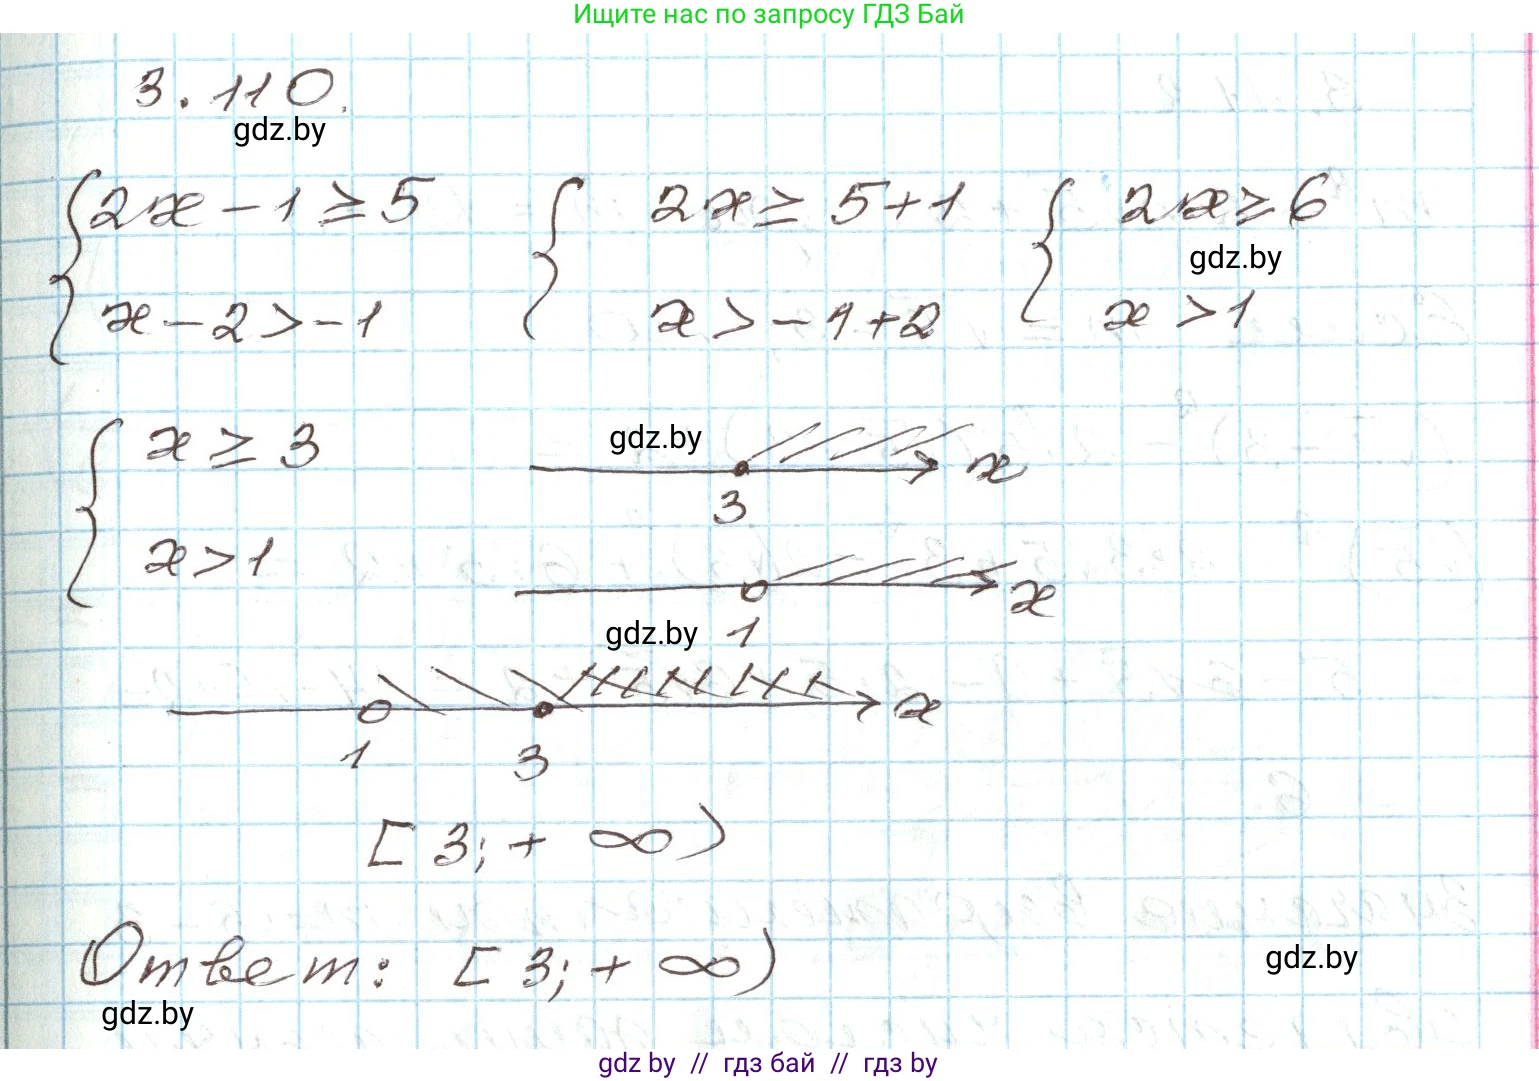 Ищите нас по запросу ГДЗ Бай
3.110.
gdz.by
{2x - 1 ≥ 5 { 2x ≥ 5 + 1 { 2x ≥ 6
gdz.by
x - 2 > -1 x > -1 + 2 x > 1
{ x ≥ 3 gdz.by x
3
x > 1 x
gdz.by 1
x
1 3
[3; + ∞)
Ответ: [3; + ∞) gdz.by
gdz.by
gdz.by // гдз бай // гдз by